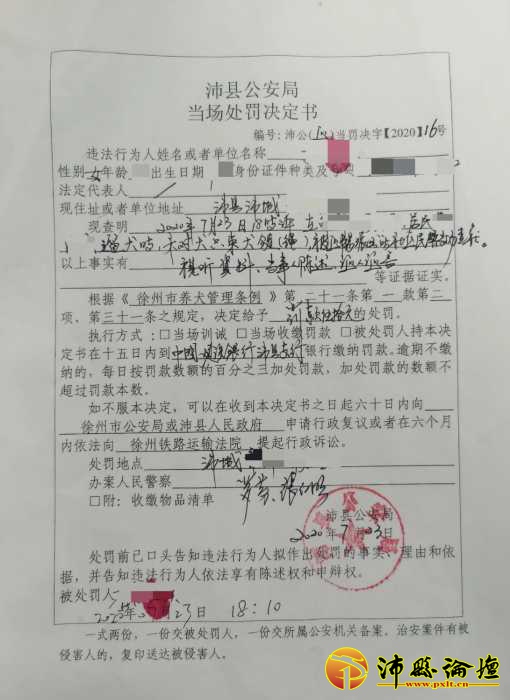 沛县公安局
当场处罚决定书
编号:沛公( )当罚决字【2020】16号
违法行为人姓名或者单位名称
性别女年龄 出生日期 身份证件种类及号码
法定代表人 /
现住址或者单位地址 沛县沛城
现查明 2020年7月23日18时许 在
遛犬时,未对犬只束犬链(绳)
以上事实有 视听资料、当事人陈述、证人证言
等证据证实。
根据《徐州市养犬管理条例》第二十一条第一款第三
项、第三十一条之规定,决定给予 罚款伍拾元的处罚。
执行方式:□当场训诫 □当场收缴罚款 □被处罚人持本决
定书在十五日内到中国建设银行沛县支行银行缴纳罚款。逾期不缴
纳的,每日按罚款数额的百分之三加处罚款,加处罚款的数额不
超过罚款本数。
如不服本决定,可以在收到本决定书之日起六十日内向
徐州市公安局或沛县人民政府 申请行政复议或者在六个月
内依法向 徐州铁路运输法院 提起行政诉讼。
处罚地点 沛城
办案人民警察
□附:收缴物品清单
沛县公安局
2020年7月23日
处罚前已口头告知违法行为人拟作出处罚的事实、理由和依
据,并告知违法行为人依法享有陈述权和申辩权。
被处罚人
2020年07月23日 18:10
一式两份,一份交被处罚人,一份交所属公安机关备案。治安案件有被
侵害人的,复印送达被侵害人。
沛县论坛
www.pxlt.cn